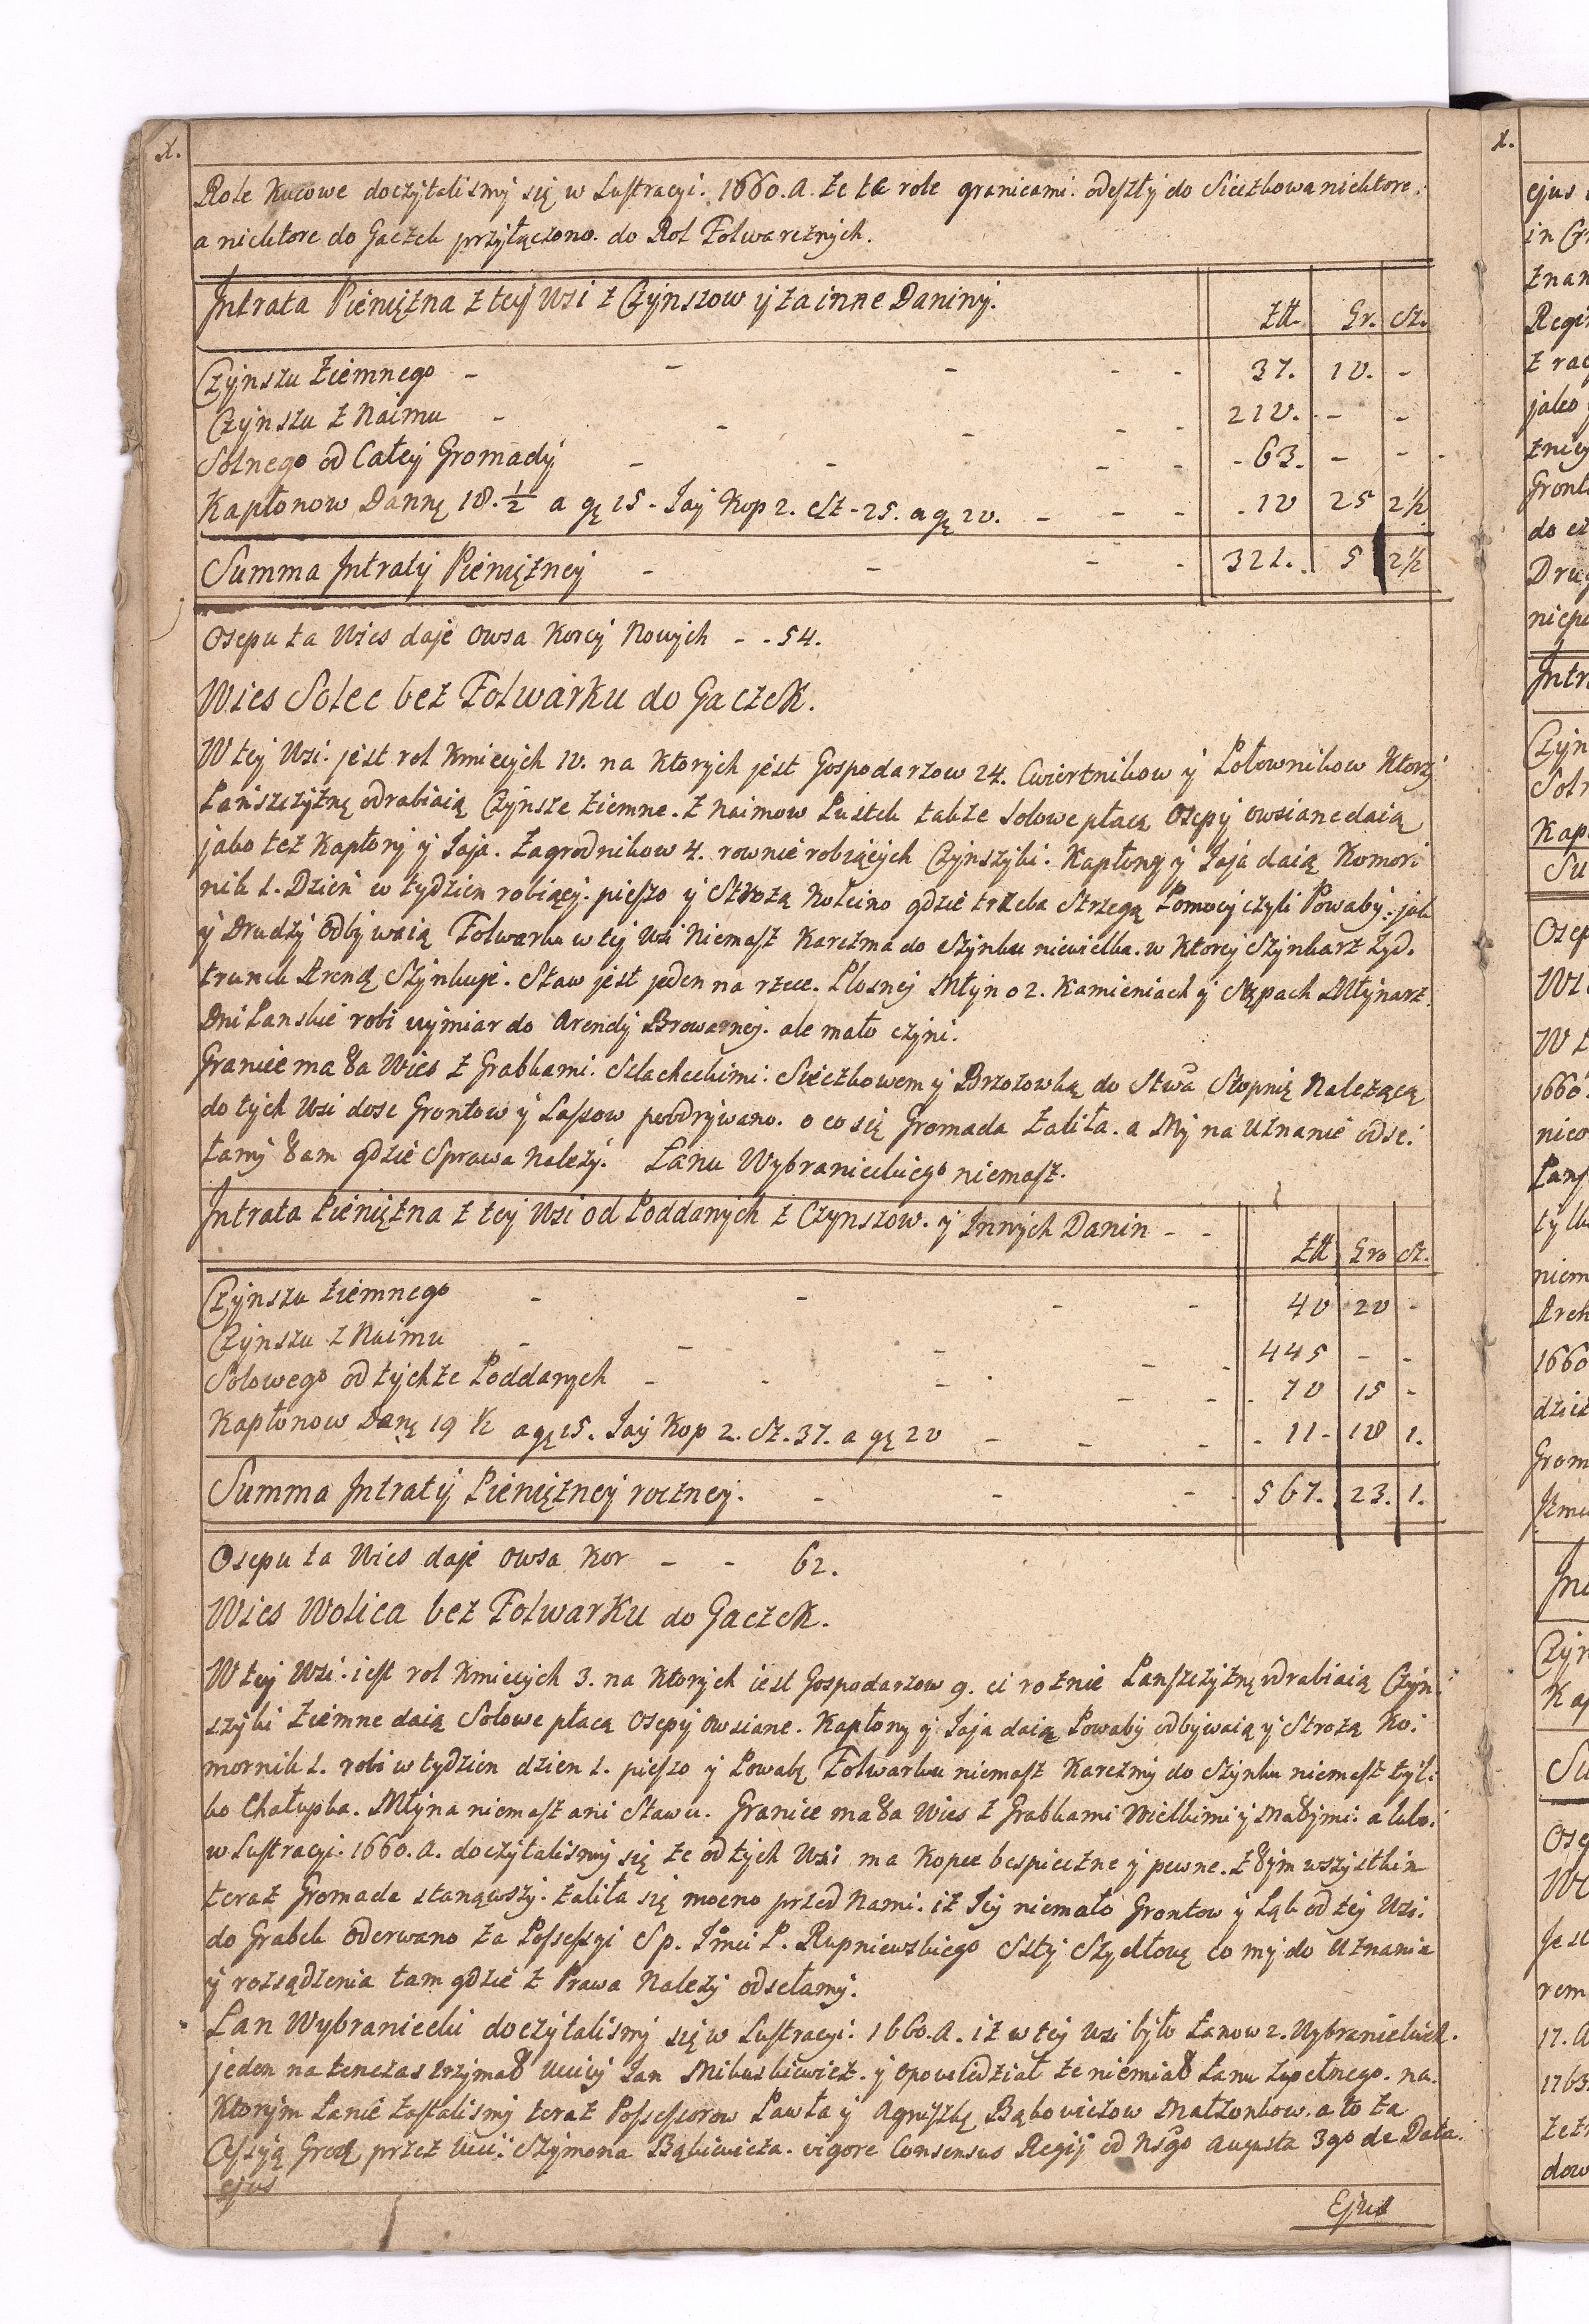 X.
Role Kucowe doczytalismy się w Lustracyi. 1660. A. że te role granicami. odeszły do Sieczkowa niektore.
a niektore do Gaczek przyłączono. do Rol Folwarcznych.
Intrata Pieniężna z tey Wsi z Czynszow y za inne Daniny. Złł. Gr. Sz.
Czynszu Ziemnego - - - - - 37. 10. -
Czynszu z Naimu - - - - - 210. - -
Solnego od Całey Gromady - - - - - 63. - -
Kapłonow Dannę 18. ½ a gę 15 - Jay Kop 2. Szt - 25. a gę 20. - - - - 10 25 2½
Summa Intraty Pienięzney - - - - 321. 5 2½
Osepu ta Wies daje Owsa Korcy Nowych - - 54.
Wies Solec bez Folwarku do Gaczek.
W tey Wsi. jest rol Kmiecych 12. na Ktorych jest Gospodarzow 24. Cwiertnikow y Połownikow Ktorzy
Panszczyznę odrabiaią Czynsze ziemne. z Naimow Pustek także Solowe płacą Osepy owsiane daią
jako tez Kapłony y Jaja. Zagrodnikow 4. rownie robiących Czynszyki. Kapłony y Jaja daią Komor:
nik 1. Dzień w tydzien robiący. pieszo y Strozą Koleino gdzie trzeba Strzegą Pomocy czyli Powaby. jak
y Drudzy Odbywaią Folwarku w tey Wsi Niemasz Karczma do Szynku niewielka. w Ktorey Szynkarz Zyd.
trunek Areną Szynkuje. Staw jest jeden na rzece. Plosney Młyn o 2. Kamieniach y Stępach Młynarz
Dni Panskie robi wymiar do Arendy Browarney. ale mało czyni.
Granice ma ta Wies z Grabkami. Szlacheckimi. Sieczkowem y Brzozowką do Stwa Stopnię Nalezącą
do tych Wsi dosc Grontow y Lassow poodrywano. o co się Gromada zaliła. a My na Uznanie odse:
łamy tam gdzie Sprawa Należy. Łanu Wybranieckiego niemasz.
Intrata Pienięzna z tey Wsi od Poddanych z Czynszow. y Innych Danin - - Złł Gro Sz.
Czynszu ziemnego - - - - 40 20 -
Czynszu z Naimu - - - - - 445 - -
Solowego od tychze Poddanych - - - - - 70 15 -
Kapłonow Danę 19 ½ a gę 15. Jay Kop 2. Sz. 37. a gę 20 - - - - 11 - 18 1.
Summa Intraty Pienięzney roczney. - - - 567. 23. 1.
Osepu ta Wies daje Owsa Kor - - 62.
Wies Wolica bez Folwarku do Gaczek.
W tey Wsi. iest rol Kmiecych 3. na Ktorych iest Gospodarzow 9. ci roznie Panszczyznę odrabiaią Czyn:
szyki Ziemne daią Solowe płacą Osepy owsiane. Kapłony y Jaja daią Powaby odbywaią y Strozą Ko:
mornik 1. robi w tydzien dzien 1. pieszo y Powabę Folwarku niemasz Karczmy do Szynku niemasz tyl:
ko Chałupka. Młyna niemasz ani Stawu. Granice ma ta Wies z Grabkami Wielkimi y Małymi. a lubo.
w Lustracyi. 1660. A. doczytalismy się ze od tych Wsi ma Kopce bespieczne y pewne. z tym wszystkim
teraz Gromada stanąwszy. zaliła się mocno przed Nami. iż Jey niemało Grontow y Łąk od tey Wsi.
do Grabek Oderwano za Possessyi Sp. Jmci P. Rupniewskiego Stty Szydłowę co my do Uznania
y rozsądzenia tam gdzie z Prawa Nalezy odsełamy.
Łan Wybraniecki doczytalismy się w Lustracyi. 1660. A. iz w tey Wsi było Łanow 2. Wybranieckich.
jeden natenczas trzymał Jan Mikuskiewicz. y opowiedział ze niemiał Łanu zupełnego. na.
Ktorym Łanie zastalismy teraz Possessorow Pawła y Agnyszkę Bąkowiczow Małzonkow. a to za
Cessyą Grodz przez Szymona Bąkiewicza. vigore Consensus Regij od Nsgo Augusta 3go de Data.
ejus
Ejus